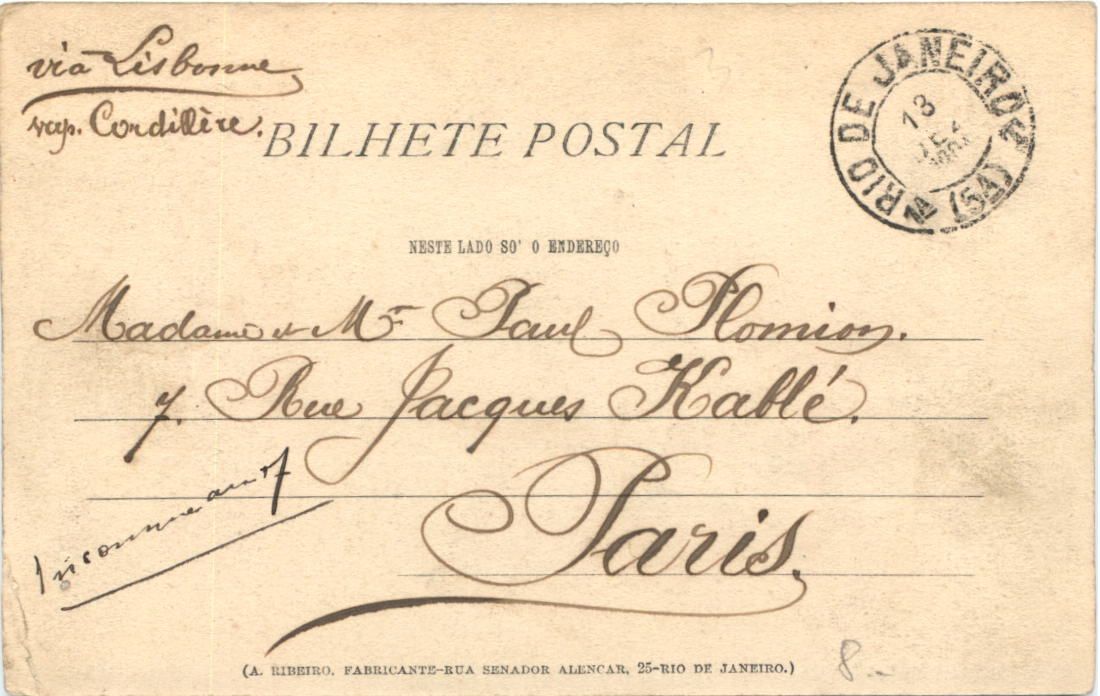 via Lisbonne
vap. Cordillère.
BILHETE POSTAL
RIO DE JANEIRO
1A (5A)
13
DEZ
NESTE LADO SO' O ENDEREÇO
Madame et Mr Paul Plomion.
7. Rue Jacques Kablé.
Paris.
Inconnue au 7
(A. RIBEIRO, FABRICANTE-RUA SENADOR ALENCAR, 25-RIO DE JANEIRO.)
8